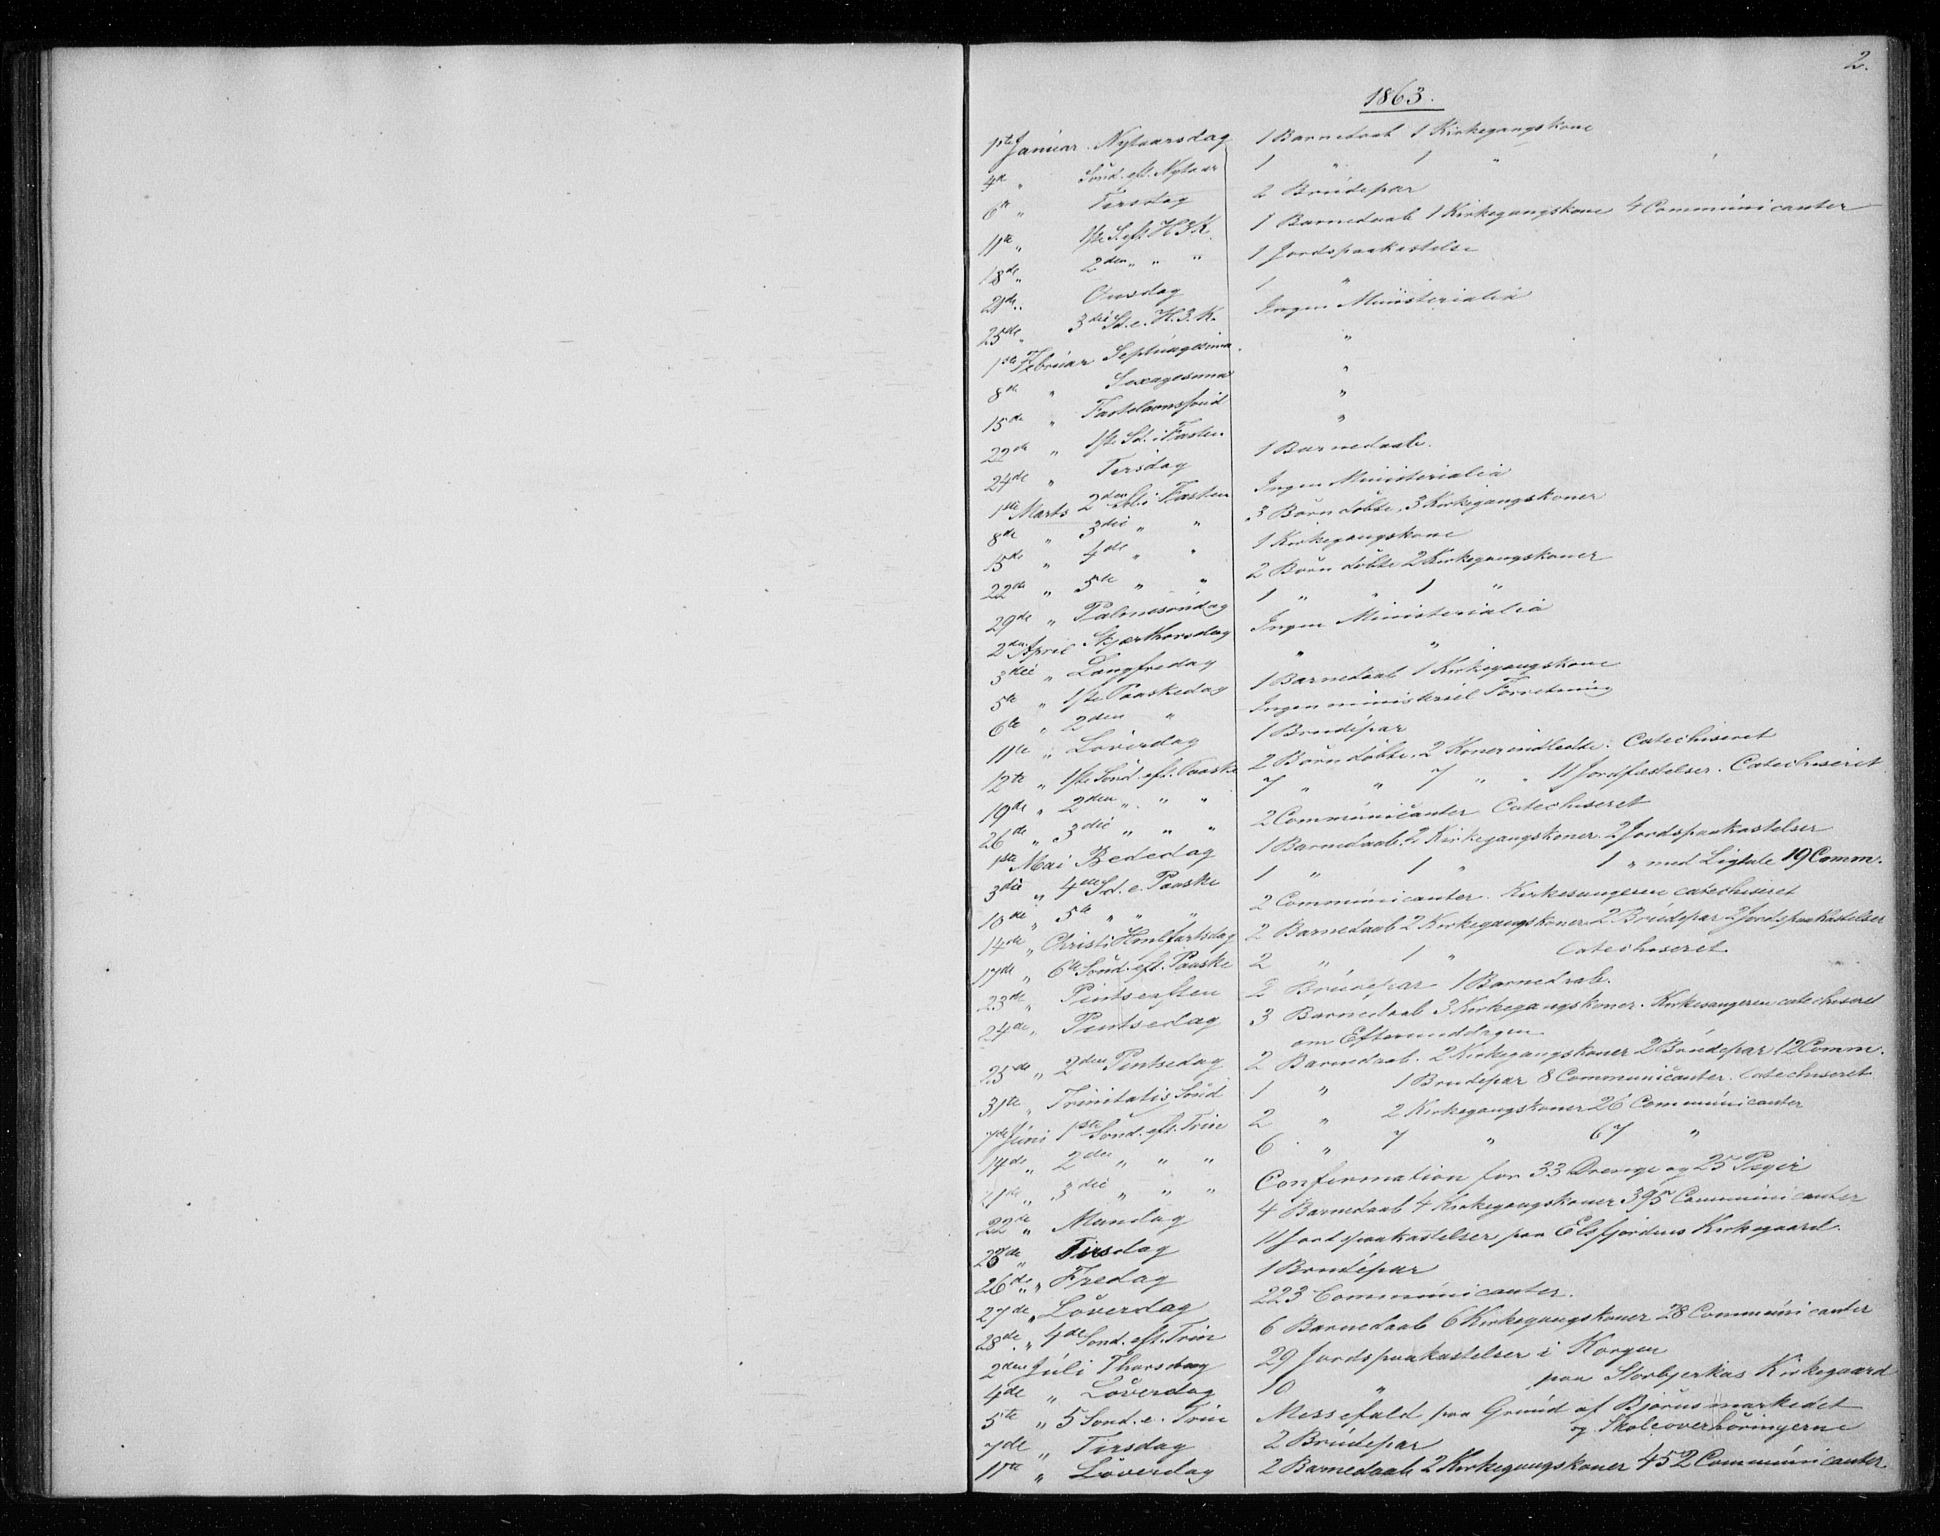 2.
1863.
1ste Januar Nytaarsdag 1 Barnedaab 1 Kirkegangskone
4de " Sönd. eft. Nytaar 1 " 1 "
6te " Tirsdag 2 Brudepar
11te " 1ste S. eft. H.3.K. 1 Barnedaab 1 Kirkegangskone 4 Communicanter
18de " 2den " " " 1 Jordspaakastelse
21de " Onsdag 1 "
25de " 3die Sd. e. H.3.K. Ingen Ministerialia
1ste Februar Septuagesima "
8de " Sexagesima "
15de " Fastelavnssönd "
22de " 1ste Sd. i Fasten "
24de " Tirsdag 1 Barnedaab.
1ste Marts 2den Sd. i Fasten Ingen Ministerialia
8de " 3die " " 3 Börn döbte, 3 Kirkegangskoner
15de " 4de " " 1 Kirkegangskone
22de " 5te " " 2 Börn döbte 2 Kirkegangskoner
29de " Palmesöndag 1 " " 1 "
2den April Skjærthorsdag Ingen Ministerialia
3die " Langfredag " "
5te " 1ste Paaskedag 1 Barnedaab 1 Kirkegangskone
6te " 2den " Ingen ministeriel Forretning
11te " Löverdag 1 Brudepar
12te " 1ste Sönd. eft. Paaske 2 Börn döbte, 2 Koner indledte. Catechiseret
19de " 2den " " " 7 " " 7 " " 11 Jordfæstelser. Catechiseret
26de " 3die " " " 2 Communicanter Catechiseret
1ste Mai Bededag 1 Barnedaab, 2 Kirkegangskoner. 2 Jordspaakastelser
3die " 4de Sd. e. Paaske 1 " 1 " 1 " med Ligtale 19 Comm.
10de " 5te " " " 2 Communicanter. Kirkesangeren catechiseret
14de " Christi Himlfartsdag 2 Barnedaab 2 Kirkegangskoner 2 Brudepar 2 Jordspaakastelser
17de " 6te Sönd. eft. Paaske 2 " 1 " Catechiseret
23de " Pintseaften 2 Brudepar 1 Barnedaab.
24de " Pintsedag 3 Barnedaab 3 Kirkegangskoner. Kirkesangeren catechiseret
om Eftermiddagen
25de " 2den Pintsedag 2 Barnedaab. 2 Kirkegangskoner 2 Brudepar 12 Comm.
31te " Trinitatis Sönd 1 " 1 Brudepar 8 Communicanter. Catechiseret
7de Juni 1ste Sönd. eft. Trin 2 " 2 Kirkegangskoner 26 Communicanter
14de " 2den " " " 6 " 7 " 67 "
21de " 3die " " " Confirmation for 33 Drenge og 25 Piger
22de " Mandag 4 Barnedaab 4 Kirkegangskoner 395 Communicanter
23de " Tirsdag 11 Jordspaakastelser paa Elsfjordens Kirkegaard.
26de " Fredag 1 Brudepar
27de " Löverdag 223 Communicanter.
28de " 4de Sönd. eft. Trin 6 Barnedaab 6 Kirkegangskoner 28 Communicanter
2den Juli Thorsdag 29 Jordspaakastelser i Korgen
4de " Löverdag 10 " paa Storbjerkas Kirkegaard
5te " 5 Sönd. e. Trin Messefald paa Grund af Björnsmarkedet
og Skoleoverhöringerne
7de " Tirsdag 2 Brudepar
11te " Löverdag 2 Barnedaab 2 Kirkegangskoner 452 Communicanter